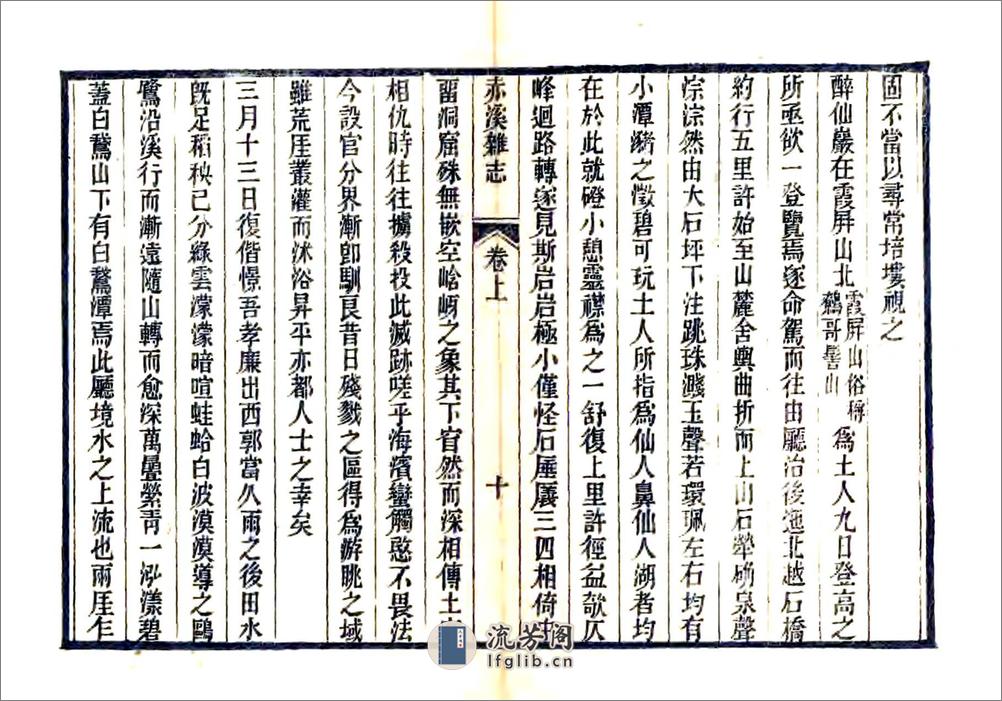 固不當以尋常培塿視之
醉仙巖在霞屏山北霞屏山俗稱鵝哥髻山為土人九日登高之
所亟欲一登覽焉遂命駕而往由廳治後迤北越石橋
約行五里許始至山麓舍輿曲折而上山石犖确泉聲
淙淙然由大石坪下注跳珠濺玉聲若環珮左右均有
小潭瀦之澂碧可玩土人所指為仙人鼻仙人湖者均
在於此就磴小憩靈襟為之一舒復上里許徑益欹仄
峰迴路轉遂見斯岩岩極小僅怪石厜㕒三四相倚中
赤溪雜志
卷上
十
畱洞窟殊無嵌空嵱岈之象其下窅然而深相傳土
相仇時往往擄殺投此滅跡嗟乎海濱蠻觸憨不畏法
今設官分界漸卽馴良昔日殘戮之區得為游眺之域
雖荒厓叢灌而沐浴昇平亦都人士之幸矣
三月十三日復偕憬吾孝廉出西郭當久雨之後田水
旣足稻秧已分綠雲濛濛暗喧蛙蛤白波漠漠導之鷗
鷺沿溪行而漸遠隨山轉而愈深萬疊縈靑一泓漾碧
蓋白鵞山下有白鵞潭焉此廳境水之上流也兩厓乍
流芳阁
lfglib.cn